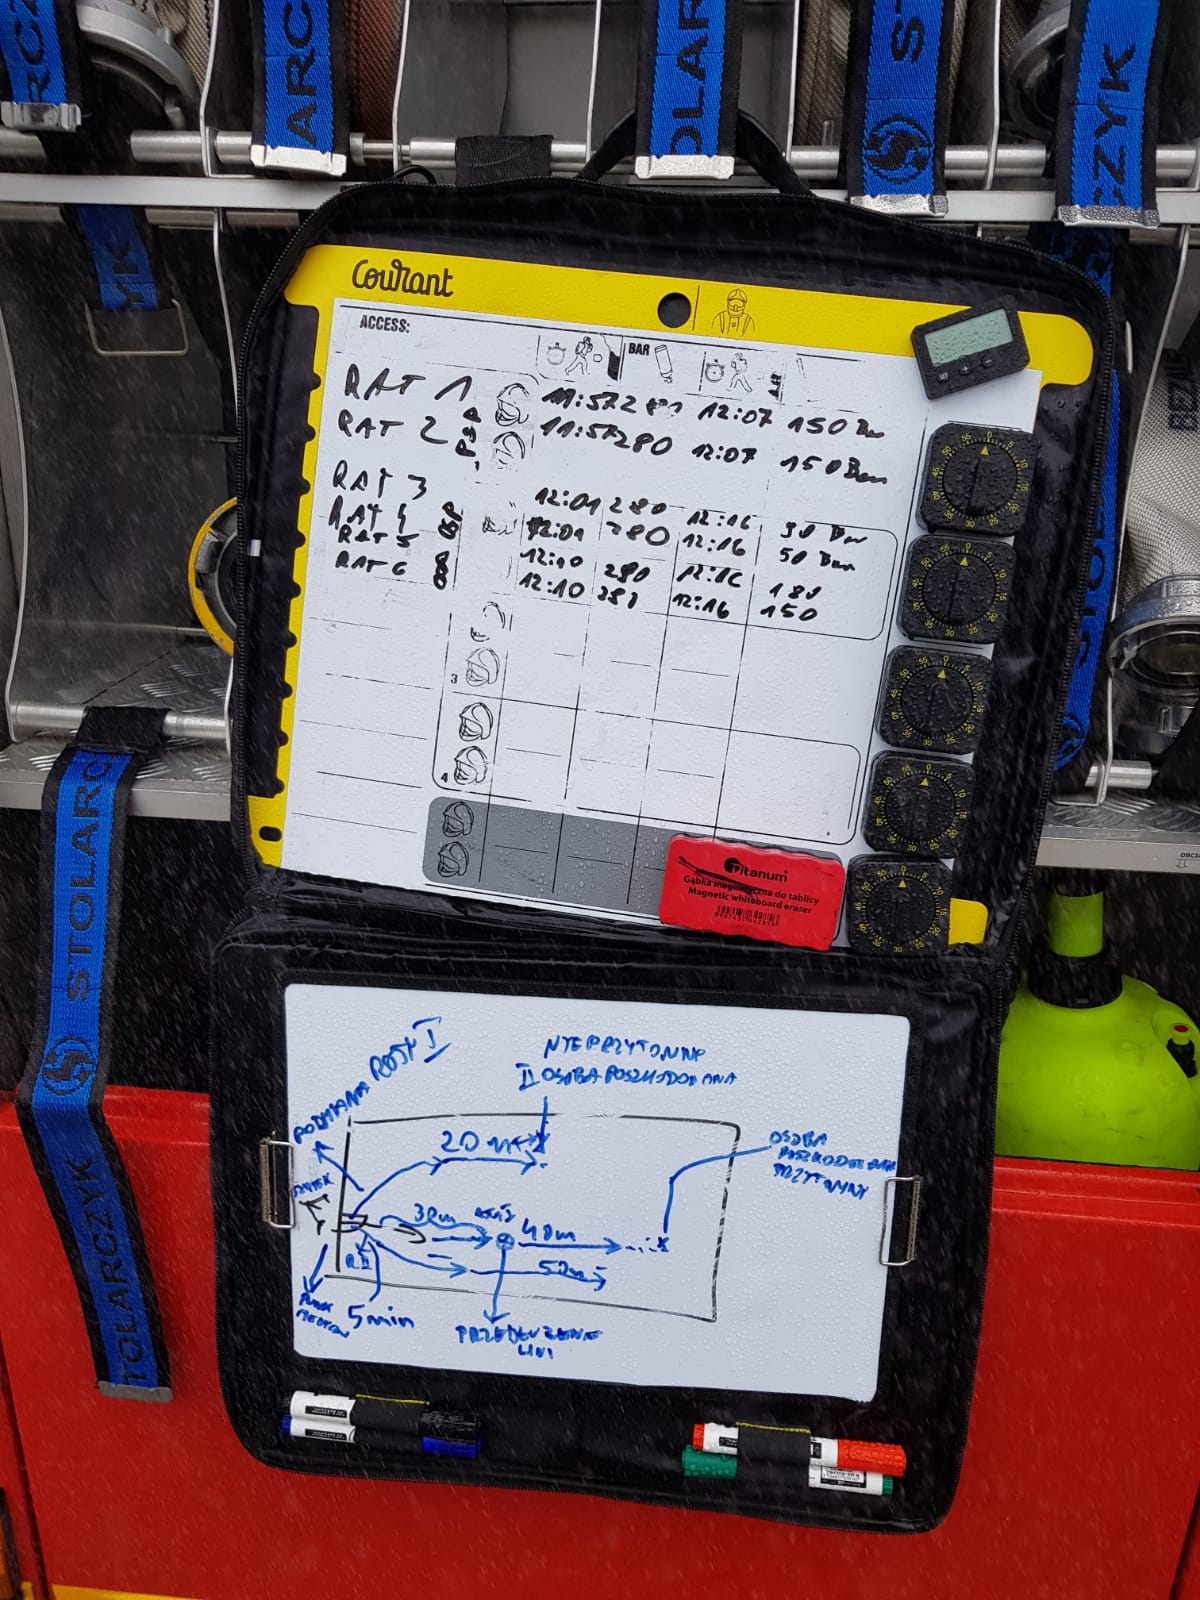 STOLARCZYK
Courant
ACCESS:
BAR
RAT 1 11:57 280 12:07 150 Bar
RAT 2 11:57 280 12:07 150 Bar
RAT 3 12:01 280 12:16 30 Bar
RAT 4 12:01 280 12:16 50 Bar
RAT 5 12:10 280 12:16 180
RAT 6 12:10 280 12:16 150
3
4
titanum
Gąbka magnetyczna do tablicy
Magnetic whiteboard eraser
NIEPRZYTOMNA
II OSOBA POSZKODOWANA
PODMIANA ROTY I
20 m
OSOBA
POSZKODOWANA
PRZYTOMNY
30m
40m
50m
5 min
PRZEDŁUŻENIE
LINI
STOLARCZYK